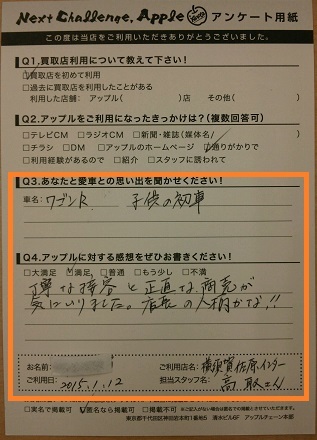 Next Challenge, Apple アンケート用紙
この度は当店をご利用いただきありがとうございました。
Q1.買取店利用について教えて下さい!
☑買取店を初めて利用
□過去に買取店を利用したことがある
利用した店舗: アップル( )店 その他( )
Q2.アップルをご利用になったきっかけは?(複数回答可)
□テレビCM □ラジオCM □新聞・雑誌(媒体名 )
□チラシ □DM □アップルのホームページ ☑通りがかりで
□利用経験があるので □紹介 □スタッフに誘われて
Q3.あなたと愛車との思い出を聞かせください!
車名: ワゴンR 子供の初車
Q4.アップルに対する感想をぜひお書きください!
□大満足 ☑満足 □普通 □もう少し □不満
丁寧な接客と正直な商売が
気にいりました。店長の人柄かな!!
お名前:
ご利用日: 2015.1.12
ご利用店名: 横須賀佐原インター
担当スタッフ名: 高取さん
□実名で掲載可 ☑匿名なら掲載可 □掲載不可
東京都千代田区神田岩本町1 清水ビル6F アップルチェーン本部